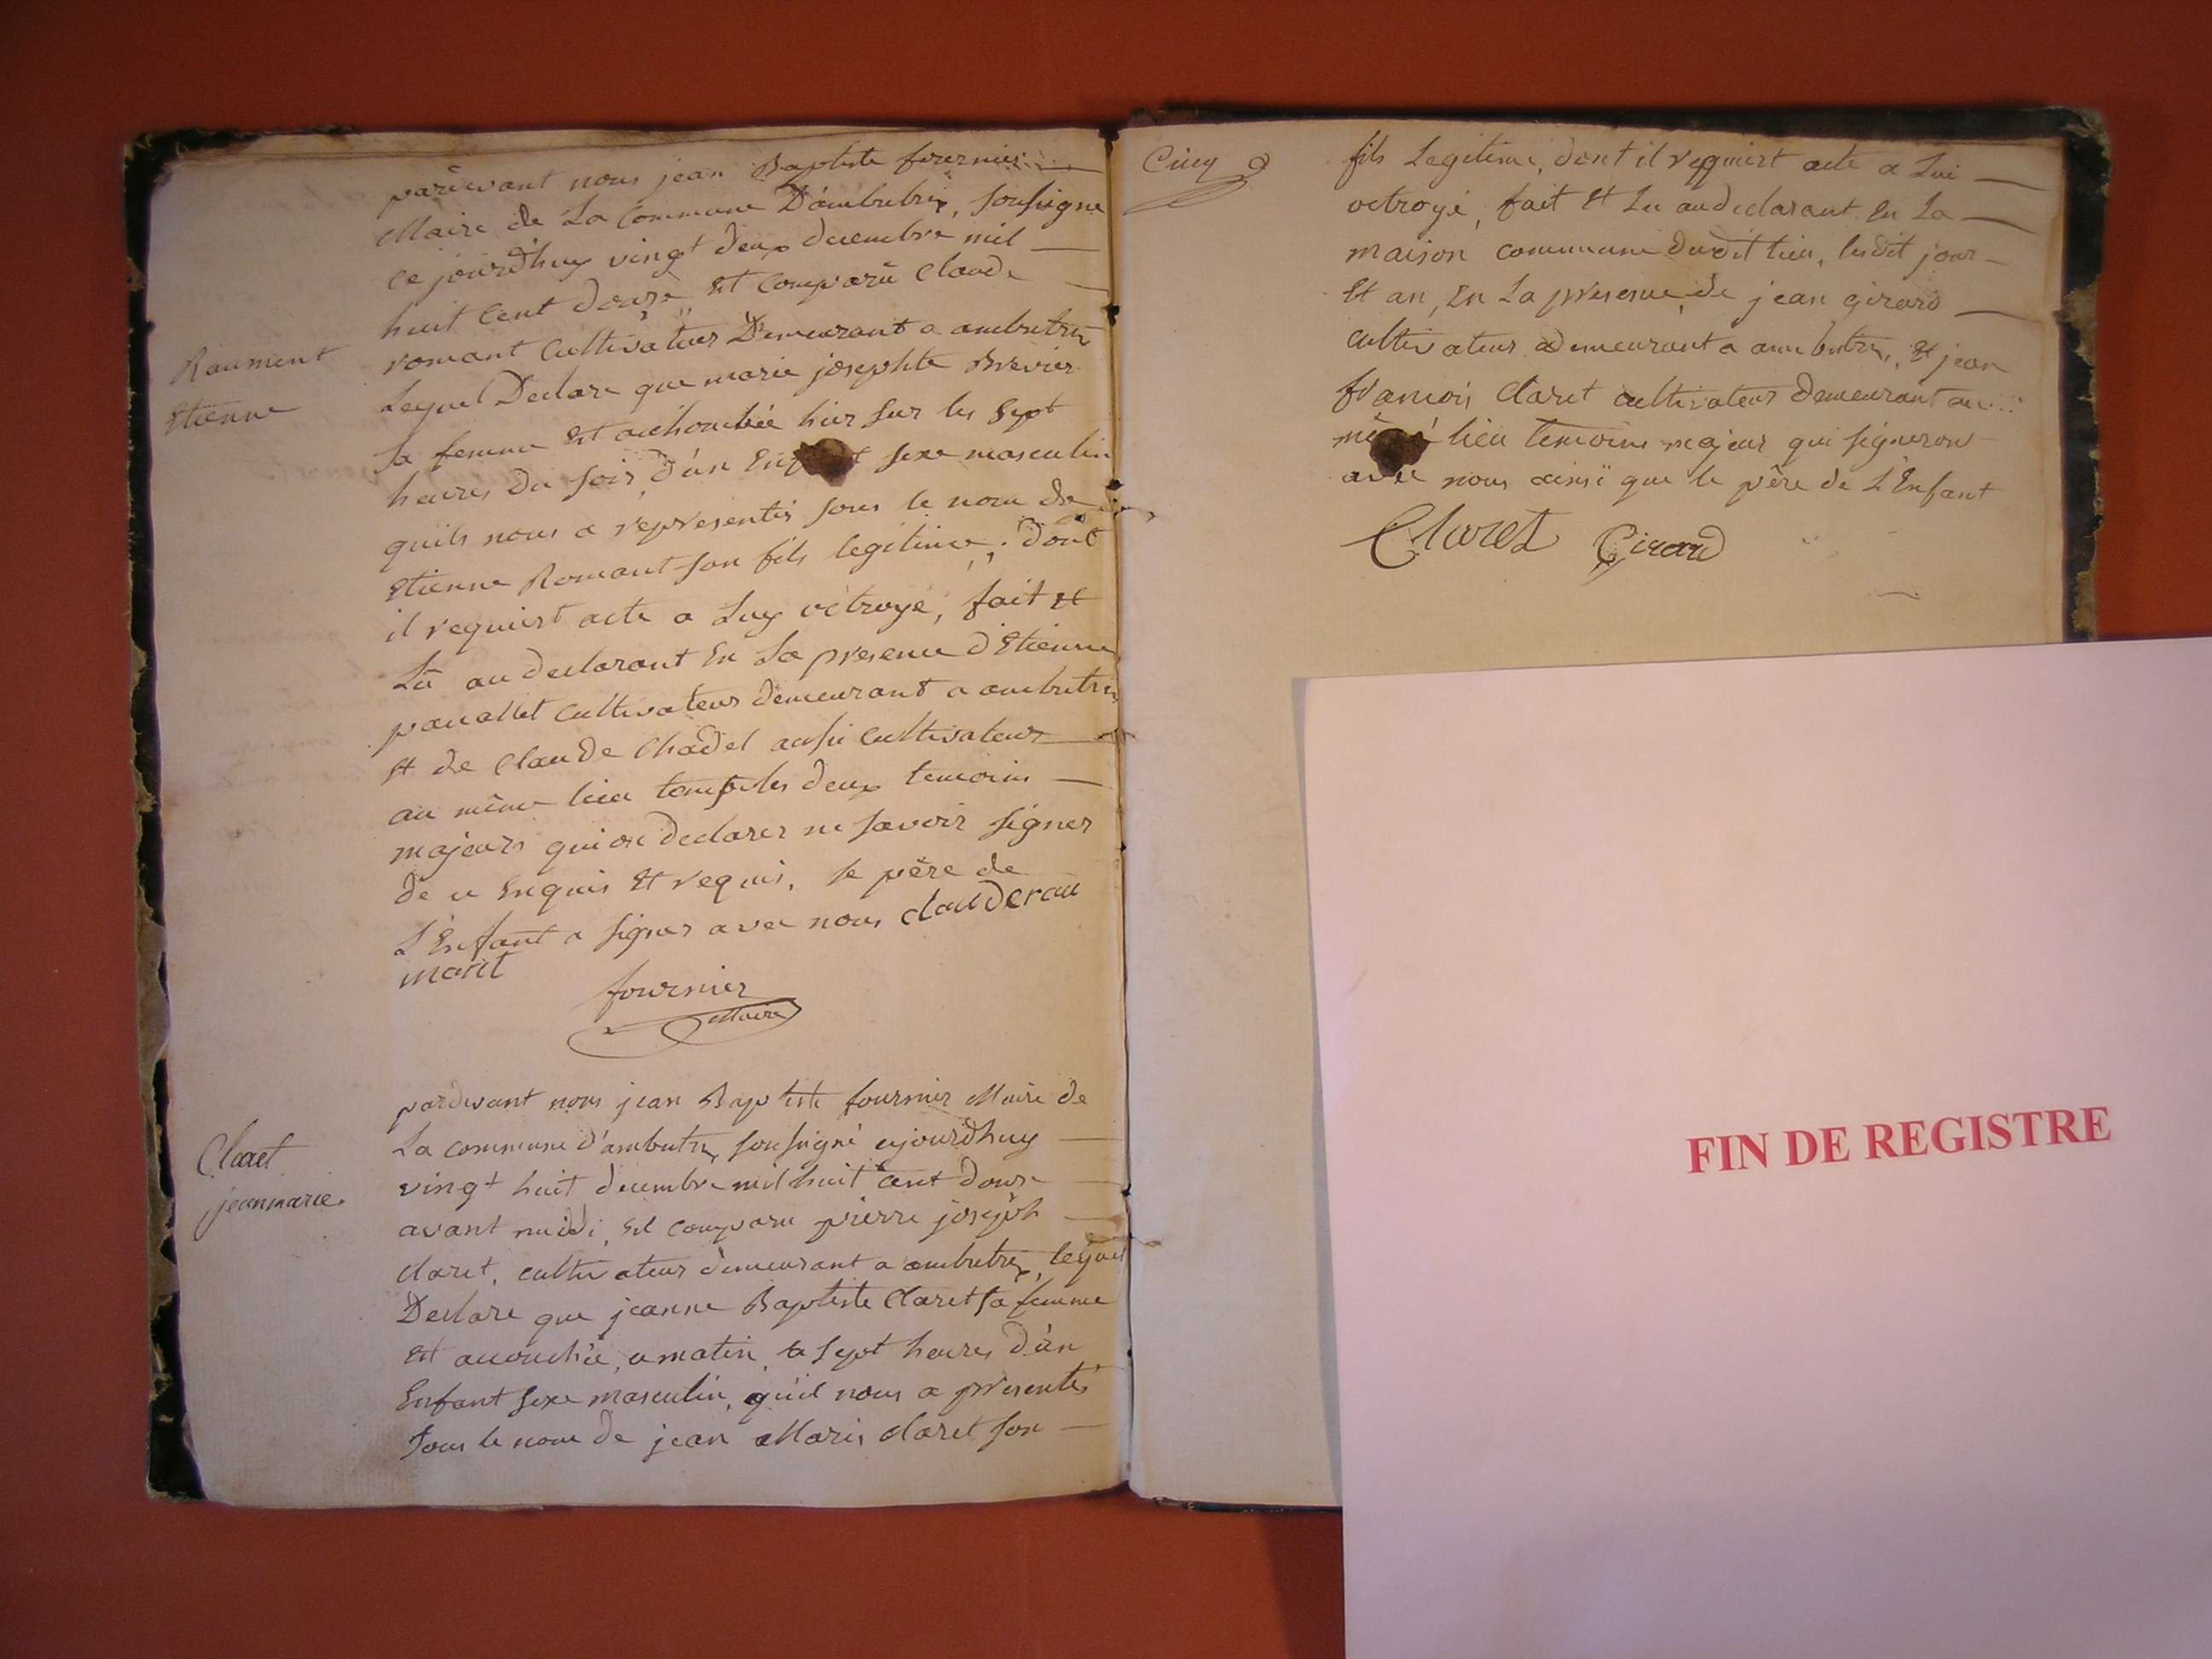 pardevant nous jean Baptiste fournier
Maire de La Commune D'ambutrix, soussigne
ce jourdhuy vingt deux decembre mil
huit Cent douze Est comparu Claude
romant Cultivateur Demeurant a ambutrix
Roument
Etienne
Lequel Declare que marie josephte Brevier
sa femme Est acchouchée hier sur les Sept
heures du soir, d'un Enf t sexe masculin
quils nous a representés sous le nom de
Etienne Romant son fils legitime; dont
il requiert acte a Luy octroyé, fait Et
Lu au declarant En La presence d'Etienne
cultivateur demeurant a ambutrix
Et de Claude Chadel aussi Cultivateur
au même lieu tous les deux temoins
majeurs qui on declarer ne savoir signer
de ce Enquis Et requis, le père de
L'Enfant a signer avec nous claude rau
mant
fournier
Maire
pardevant nous jean Baptiste fournier Maire de
La commune d'ambutrix soussigné cejourdhuy
Claret
jeanmarie.
vingt huit decembre mil huit cent douze
avant midi, est comparu pierre joseph
claret, cultivateur demeurant a ambutrix, lequel
Declare que jeanne Baptiste Claret sa femme
Est accouchée, ce matin, a sept heures d'un
Enfant sexe masculin, qu'il nous a presentés
sous le nom de jean Marie claret son
Cinq
fils Legitime, dont il requiert acte a Lui
octroyé, fait Et Lu au declarant En La
maison commune dudit lieu, lesdit jour
Et an, En La presence de jean girard
cultivateur demeurant a ambutrix, Et jean
francois Claret cultivateur demeurant au
même lieu temoins majeur qui signeron
avec nous ainsi que le père de L'Enfant
Claret Girard
FIN DE REGISTRE